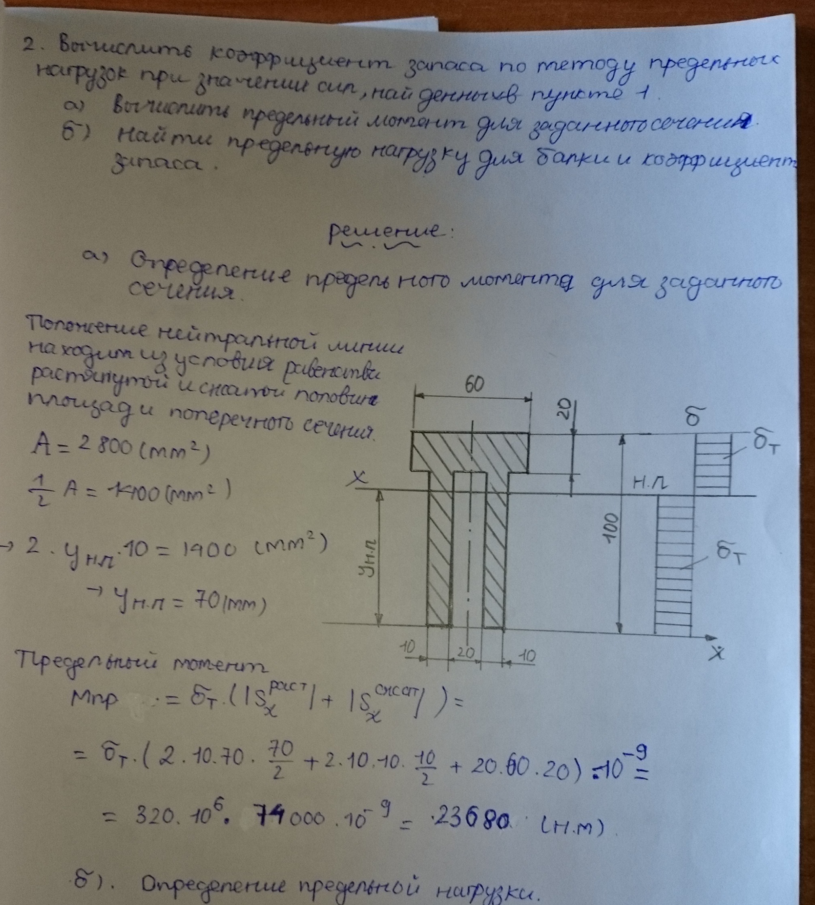 2. Вычислить коэффициент запаса по методу предельных
нагрузок при значении сил, найденных в пункте 1.
а) Вычислить предельный момент для заданного сечения.
б) Найти предельную нагрузку для балки и коэффициент
запаса.
решение:
а) Определение предельного момента для заданного
сечения.
Положение нейтральной линии
находим из условия равенства
растянутой и сжатой половин
площади поперечного сечения.
A = 2800 (mm²)
1/2 A = 1400 (mm²)
→ 2 · yн.л · 10 = 1400 (mm²)
→ yн.л = 70 (mm)
60
20
б
бт
x
н.л
100
yн.л
бт
10 20 10
x
Предельный момент
Mпр = бт · (|Sx раст| + |Sx сжат|) =
= бт · (2·10·70 · 70/2 + 2·10·10 · 10/2 + 20·60·20) · 10⁻⁹ =
= 320 · 10⁶ · 74000 · 10⁻⁹ = 23680 (н.м)
б). Определение предельной нагрузки.